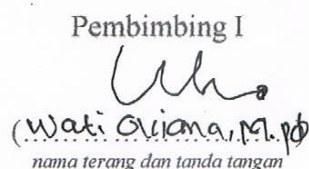 Pembimbing I
(Wati Oviana, M.Pd)
nama terang dan tanda tangan